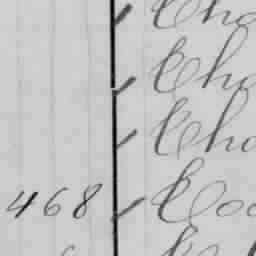 Cho
Cho
Cho
468 Coo